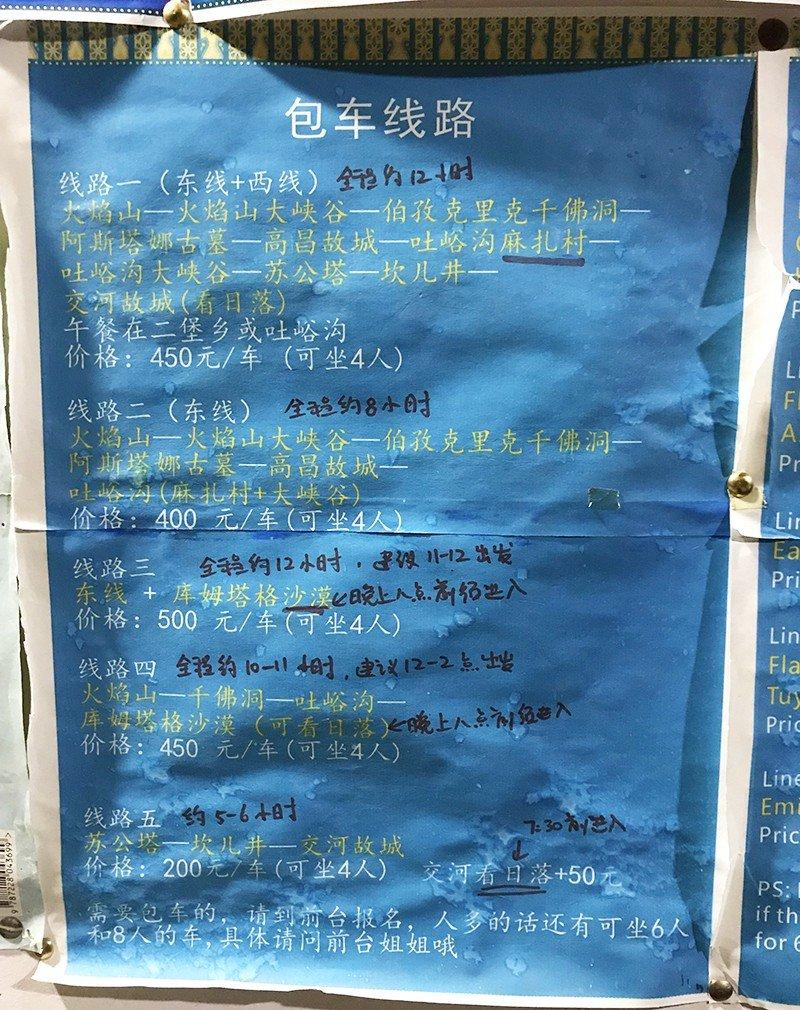 包车线路
线路一（东线+西线） 全程约12小时
火焰山—火焰山大峡谷—伯孜克里克千佛洞—
阿斯塔娜古墓—高昌故城—吐峪沟麻扎村—
吐峪沟大峡谷—苏公塔—坎儿井—
交河故城(看日落)
午餐在二堡乡或吐峪沟
价格：450元/车 (可坐4人)
线路二（东线） 全程约8小时
火焰山—火焰山大峡谷—伯孜克里克千佛洞—
阿斯塔娜古墓—高昌故城—
吐峪沟(麻扎村+大峡谷)
价格：400 元/车(可坐4人)
线路三 全程约12小时，建议11-12出发
东线 + 库姆塔格沙漠←晚上8点前须进入
价格：500 元/车(可坐4人)
线路四 全程约10-11小时，建议12-2点出发
火焰山—千佛洞—吐峪沟—
库姆塔格沙漠（可看日落)←晚上8点前须进入
价格：450 元/车(可坐4人)
线路五 约5-6小时
7:30前进入
苏公塔—坎儿井—交河故城
价格：200元/车(可坐4人) 交河看日落+50元
需要包车的，请到前台报名，人多的话还有可坐6人
和8人的车,具体请问前台姐姐哦
9787228043699>
P
Li
F
A
Pr
Lin
Ea
Pri
Lin
Fla
Tuy
Pric
Line
Emi
Pric
PS:
if th
for 6